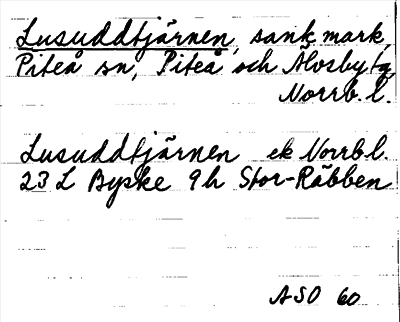 Lusuddtjärnen, sank mark,
Piteå sn, Piteå och Älvsby tg,
Norrb. l.
Lusuddtjärnen ek Norrb l.
23 L Byske 9 h Stor-Räbben
ASO 60